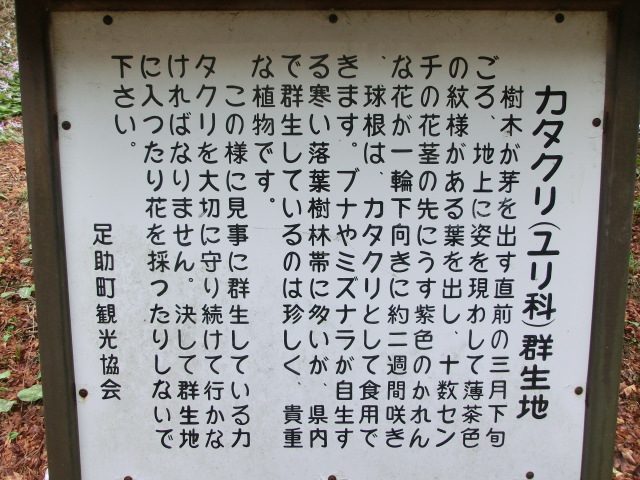 カタクリ（ユリ科）群生地
樹木が芽を出す直前の三月下旬
ごろ、地上に姿を現わして薄茶色
の紋様がある葉を出し、十数セン
チの花茎の先にうす紫色のかれん
な花が一輪下向きに約二週間咲き
、球根は、カタクリとして食用で
きます。ブナやミズナラが自生す
る寒い落葉樹林帯に多いが、県内
で群生しているのは珍しく、貴重
な植物です。
この様に見事に群生しているカ
タクリを大切に守り続けて行かな
ければなりません。決して群生地
に入つたり花を採つたりしないで
下さい。
足助町観光協会